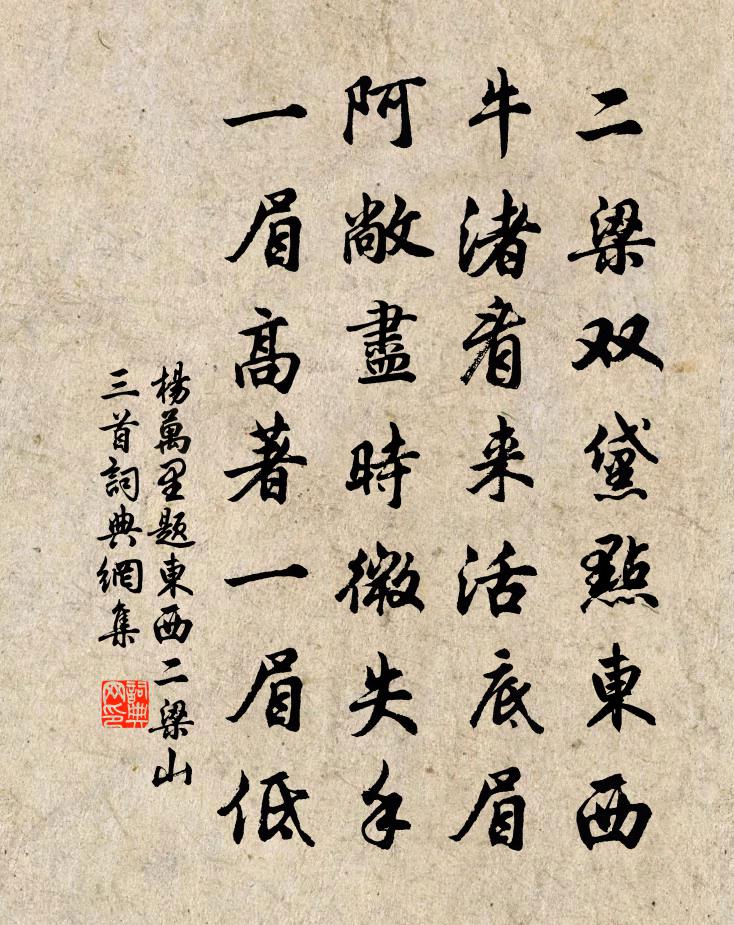 二梁双黛點東西
牛渚看来活底眉
阿敞畫時微失手
一眉高著一眉低
楊萬里題東西二梁山
三首詞典網集
詞典网印